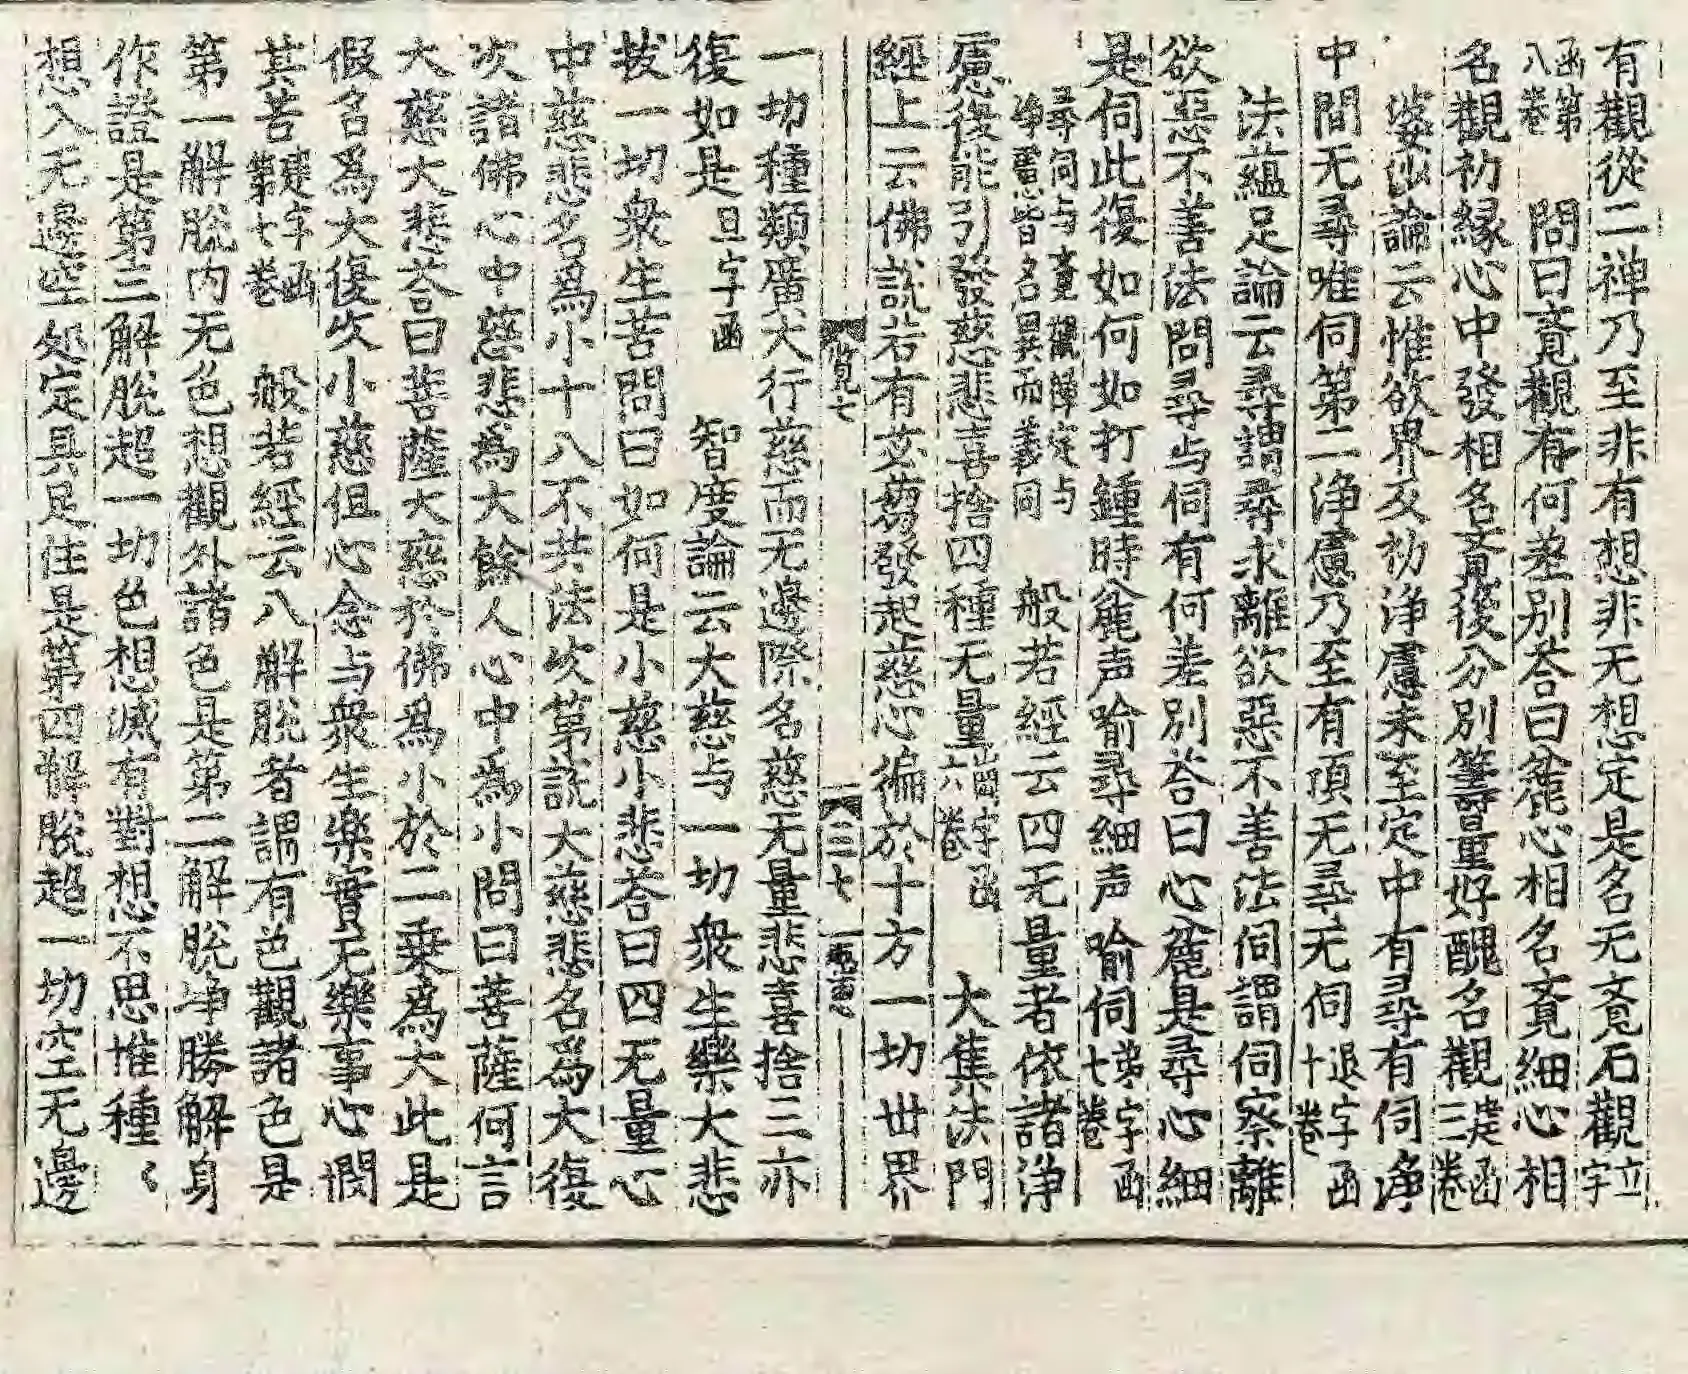 有觀從二禅乃至非有想非无想定是名无覔石觀立字
函第八卷　問曰覔觀有何差別荅曰麁心相名覔細心相
名觀初緣心中發相名覔後分別籌量好醜名觀建函三卷
婆沙論云惟欲界及初浄慮未至定中有尋有伺浄
中間无尋唯伺第二浄慮乃至有頂无尋无伺退字函十卷
法蘊足論云尋謂尋求離欲惡不善法伺謂伺察離
欲惡不善法問尋与伺有何差別荅曰心麁是尋心細
是伺此復如何如打鍾時麁声喻尋細声喻伺第字函七卷
尋伺与覔觀禪定与浄慮皆名異而義同　般若經云四无量者依諸浄
慮復能引發慈悲喜捨四種无量崗字函六卷　大集法門
經上云佛說若有苾蒭發起慈心徧於十方一切世界
覧七　三七
一切種類廣大行慈而无邊際名慈无量悲喜捨三亦
復如是旦字函　智度論云大慈与一切衆生樂大悲
拔一切衆生苦問曰如何是小慈小悲荅曰四无量心
中慈悲名爲小十八不共法次第說大慈悲名爲大復
次諸佛心中慈悲爲大餘人心中爲小問曰菩薩何言
大慈大悲荅曰菩薩大慈於佛爲小於二乗爲大此是
假名爲大復次小慈但心念与衆生樂實无樂事心憫
其苦建字函第七卷　般若經云八解脫者謂有色觀諸色是
第一解脫内无色想觀外諸色是第二解脫净勝解身
作證是第三解脫超一切色想滅有對想不思惟種〻
想入无邊空処定具足住是第四解脫超一切空无邊